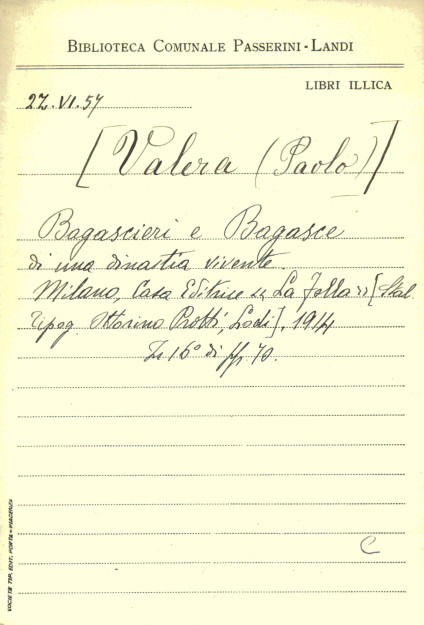 BIBLIOTECA COMUNALE PASSERINI-LANDI
LIBRI ILLICA
22.VI.57
[Valera (Paolo)]
Bagascieri e Bagasce
di una dinastia vivente.
Milano, Casa Editrice « La Folla » [Stab.
Tipog. Ottorino Protti, Lodi], 1914
In 16° di pp. 70.
C
SOCIETÀ TIP. EDIT. PORTA - PIACENZA